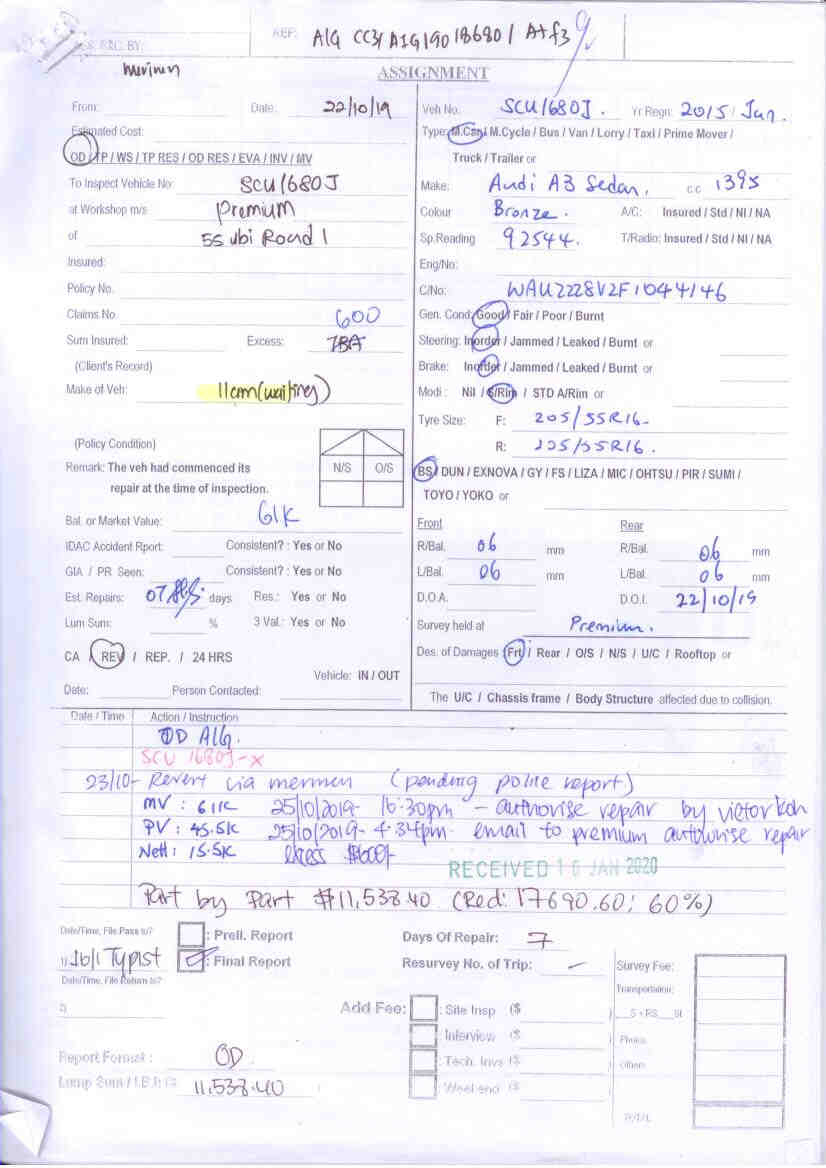 ASS. REC. BY:
REF: AIG CC3/AIG19018680/ Atf3
ASSIGNMENT
From: Date: 22/10/19
Estimated Cost:
OD / TP / WS / TP RES / OD RES / EVA / INV / MV
To Inspect Vehicle No: SCU1680J
at Workshop m/s Premium
of 55 ubi Road 1
Insured:
Policy No.
Claims No. 600
Sum Insured: Excess: TBA
(Client's Record)
Make of Veh: 11am (waiting)
(Policy Condition)
Remark: The veh had commenced its
repair at the time of inspection.
N/S O/S
Bal. or Market Value: 61K
IDAC Accident Rport: Consistent? : Yes or No
GIA / PR Seen: Consistent? : Yes or No
Est. Repairs: 07 days Res.: Yes or No
Lum Sum: % 3 Val.: Yes or No
CA / REV / REP. / 24 HRS
Vehicle: IN / OUT
Date: Person Contacted:
Veh No. SCU1680J. Yr Regn: 2015 / Jan.
Type: M.Car / M.Cycle / Bus / Van / Lorry / Taxi / Prime Mover /
Truck / Trailer or
Make: Audi A3 Sedan. cc 1395
Colour Bronze. A/C: Insured / Std / NI / NA
Sp.Reading 92544. T/Radio: Insured / Std / NI / NA
Eng/No:
C/No: WAUZZZ8V2F1044146
Gen. Cond: Good / Fair / Poor / Burnt
Steering: Inorder / Jammed / Leaked / Burnt or
Brake: Inorder / Jammed / Leaked / Burnt or
Modi : Nil / S/Rim / STD A/Rim or
Tyre Size: F: 205/55R16.
R: 225/55R16.
BS / DUN / EXNOVA / GY / FS / LIZA / MIC / OHTSU / PIR / SUMI /
TOYO / YOKO or
Front Rear
R/Bal. 06 mm R/Bal. 06 mm
L/Bal. 06 mm L/Bal. 06 mm
D.O.A. D.O.I. 22/10/19
Survey held at Premium.
Des. of Damages : Frt / Rear / O/S / N/S / U/C / Rooftop or
The U/C / Chassis frame / Body Structure affected due to collision.
Date / Time Action / Instruction
OD AIG.
SCU 1680J-X
23/10- Revert via merimen (pending police report)
MV : 61K 25/10/2019- 16.30pm - authorise repair by victor koh
PV : 45.5K 25/10/2019- 4.34pm- email to premium authorise repair
Nett : 15.5K excess $600/-
RECEIVED 16 JAN 2020
Part by Part $11,538.40 (Red: 17690.60; 60%)
Date/Time, File Pass to?
: Preli. Report
Days Of Repair: 7
1) 16/1 Typist
: Final Report
Resurvey No. of Trip: -
Date/Time, File Return to?
Survey Fee:
Transportation:
Add Fee: : Site Insp ($
: Interview ($
: Tech. Invs ($
: Week end ($
Photos
Others
Report Format : OD
Lump Sum / I.B.I: ($ 11,538.40